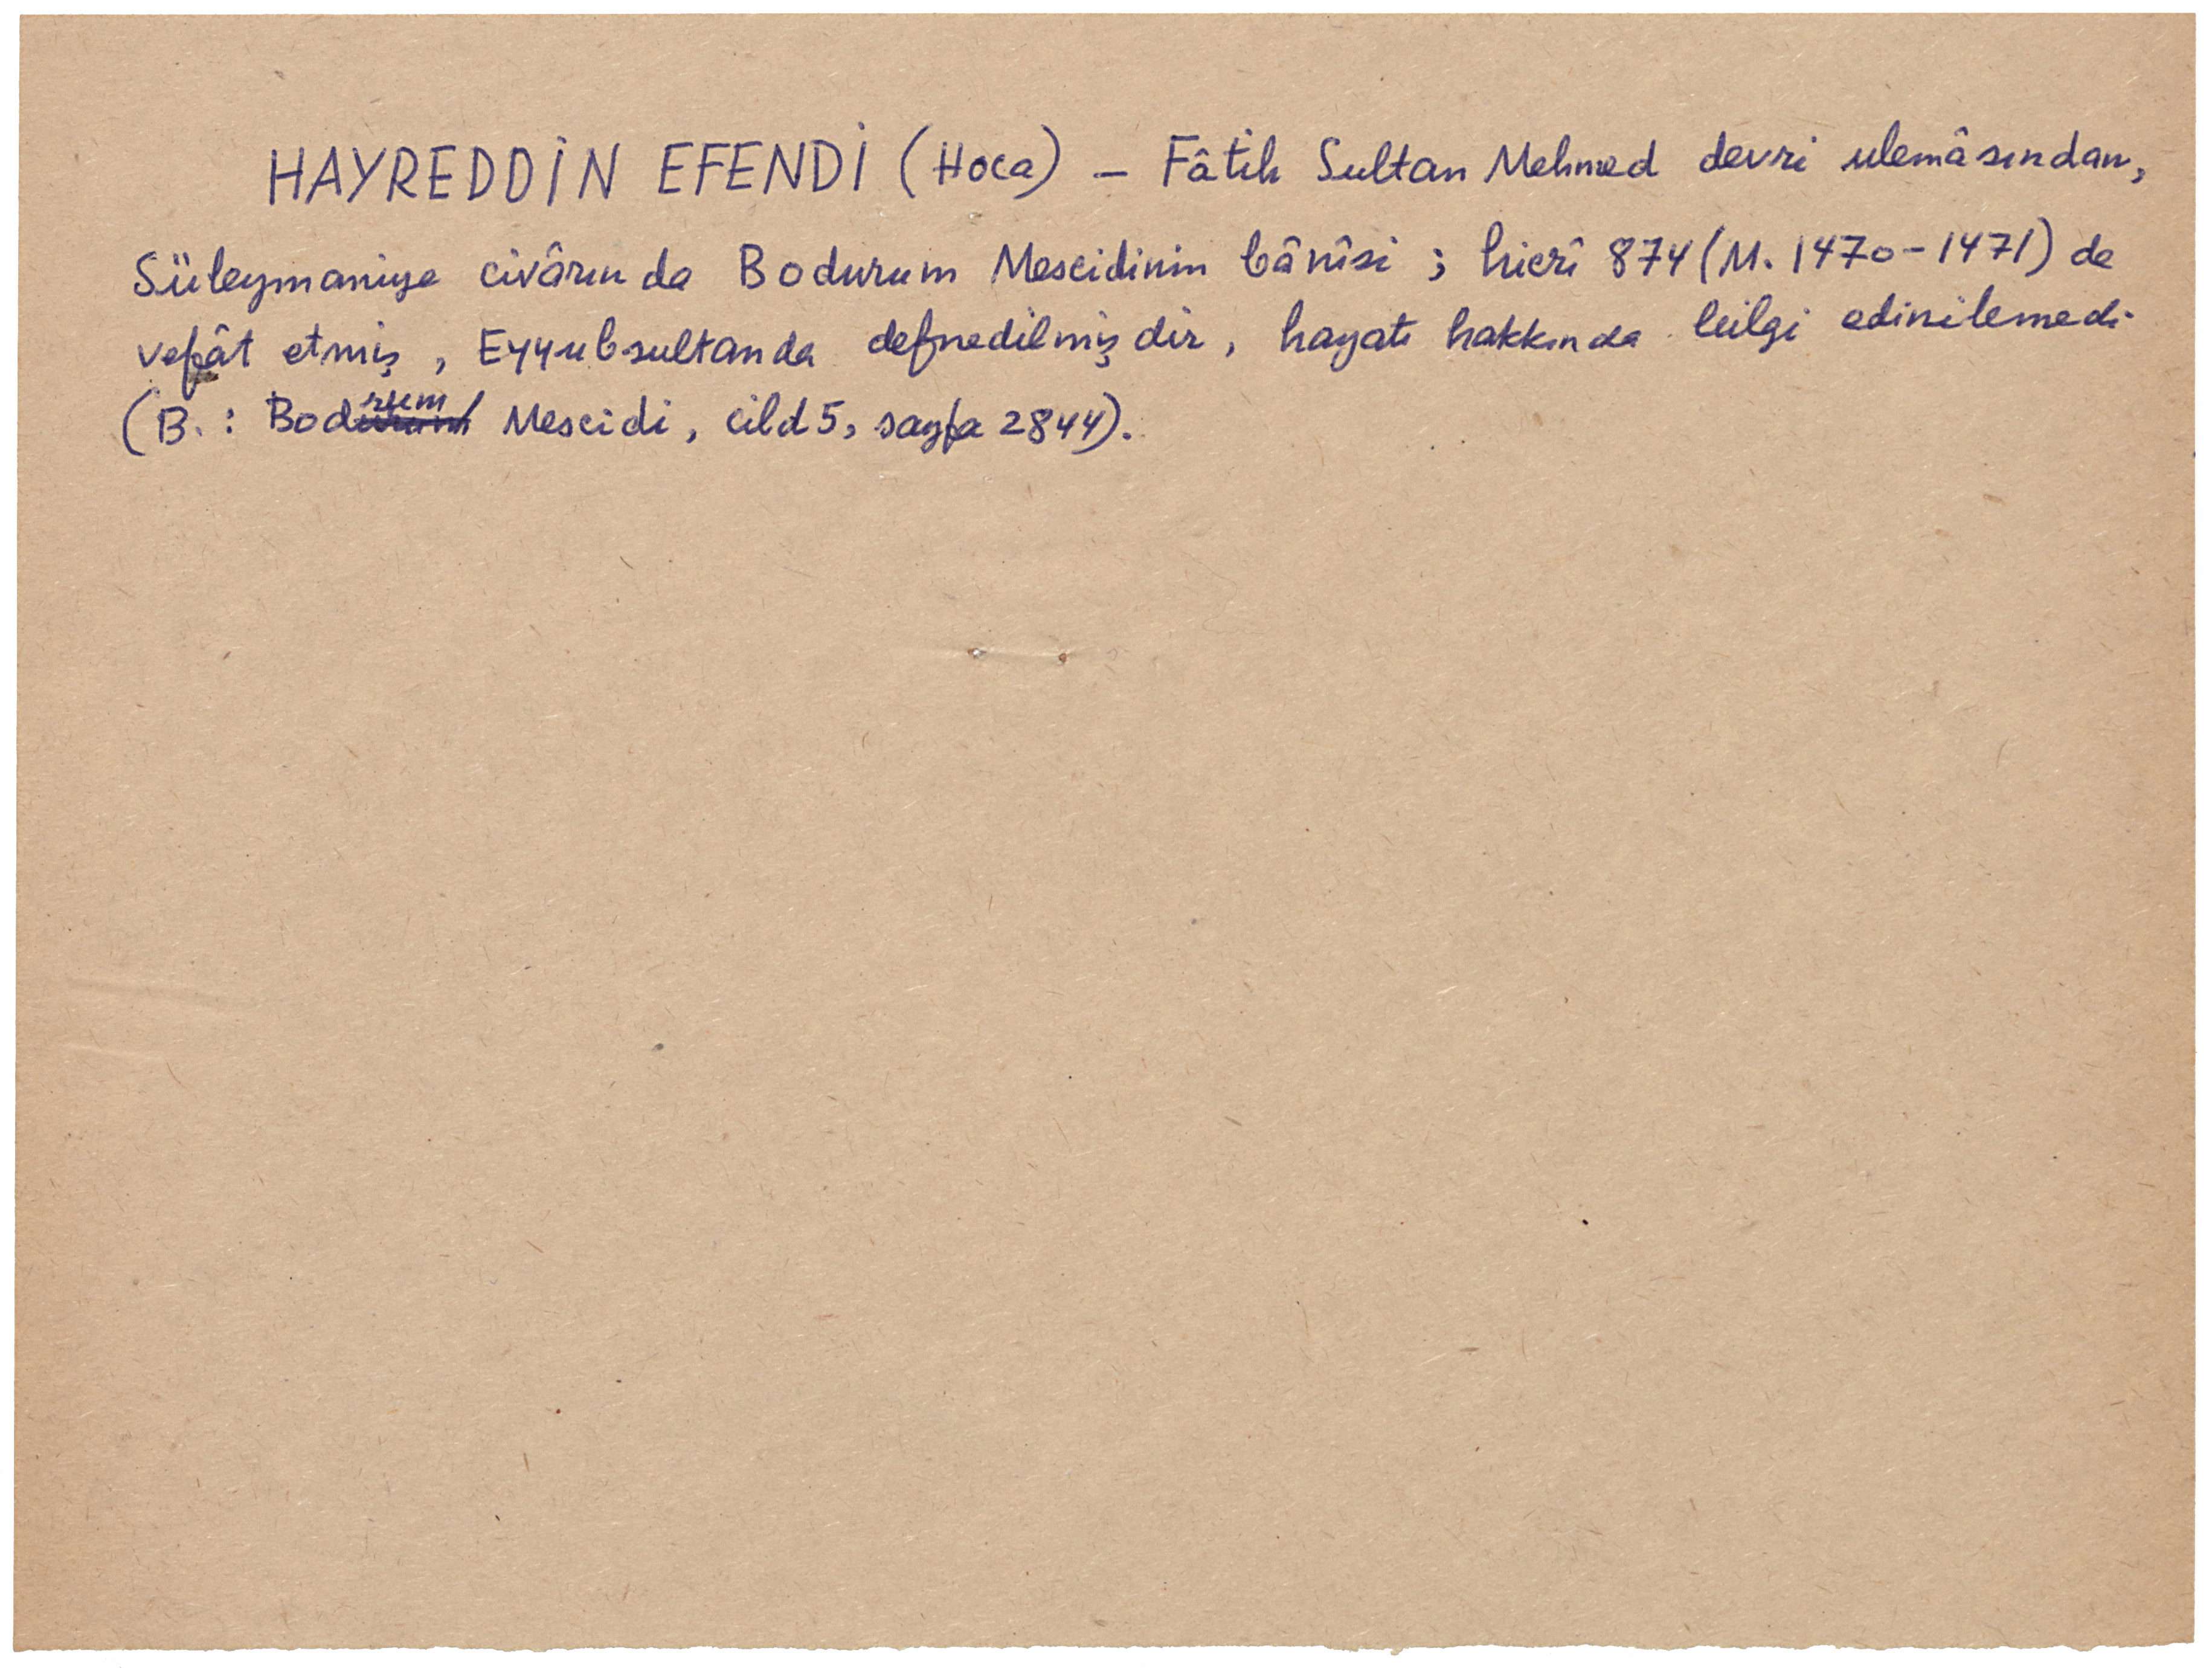 HAYREDDİN EFENDİ (Hoca) – Fâtih Sultan Mehmed devri ulemâsından,
Süleymaniye civârında Bodurum Mescidinin bânîsi ; hicrî 874 (M. 1470-1471) de
vefât etmiş, Eyyubsultanda defnedilmişdir, hayatı hakkında bilgi edinilemedi
(B. : Bodrum Mescidi, cild 5, sayfa 2844).